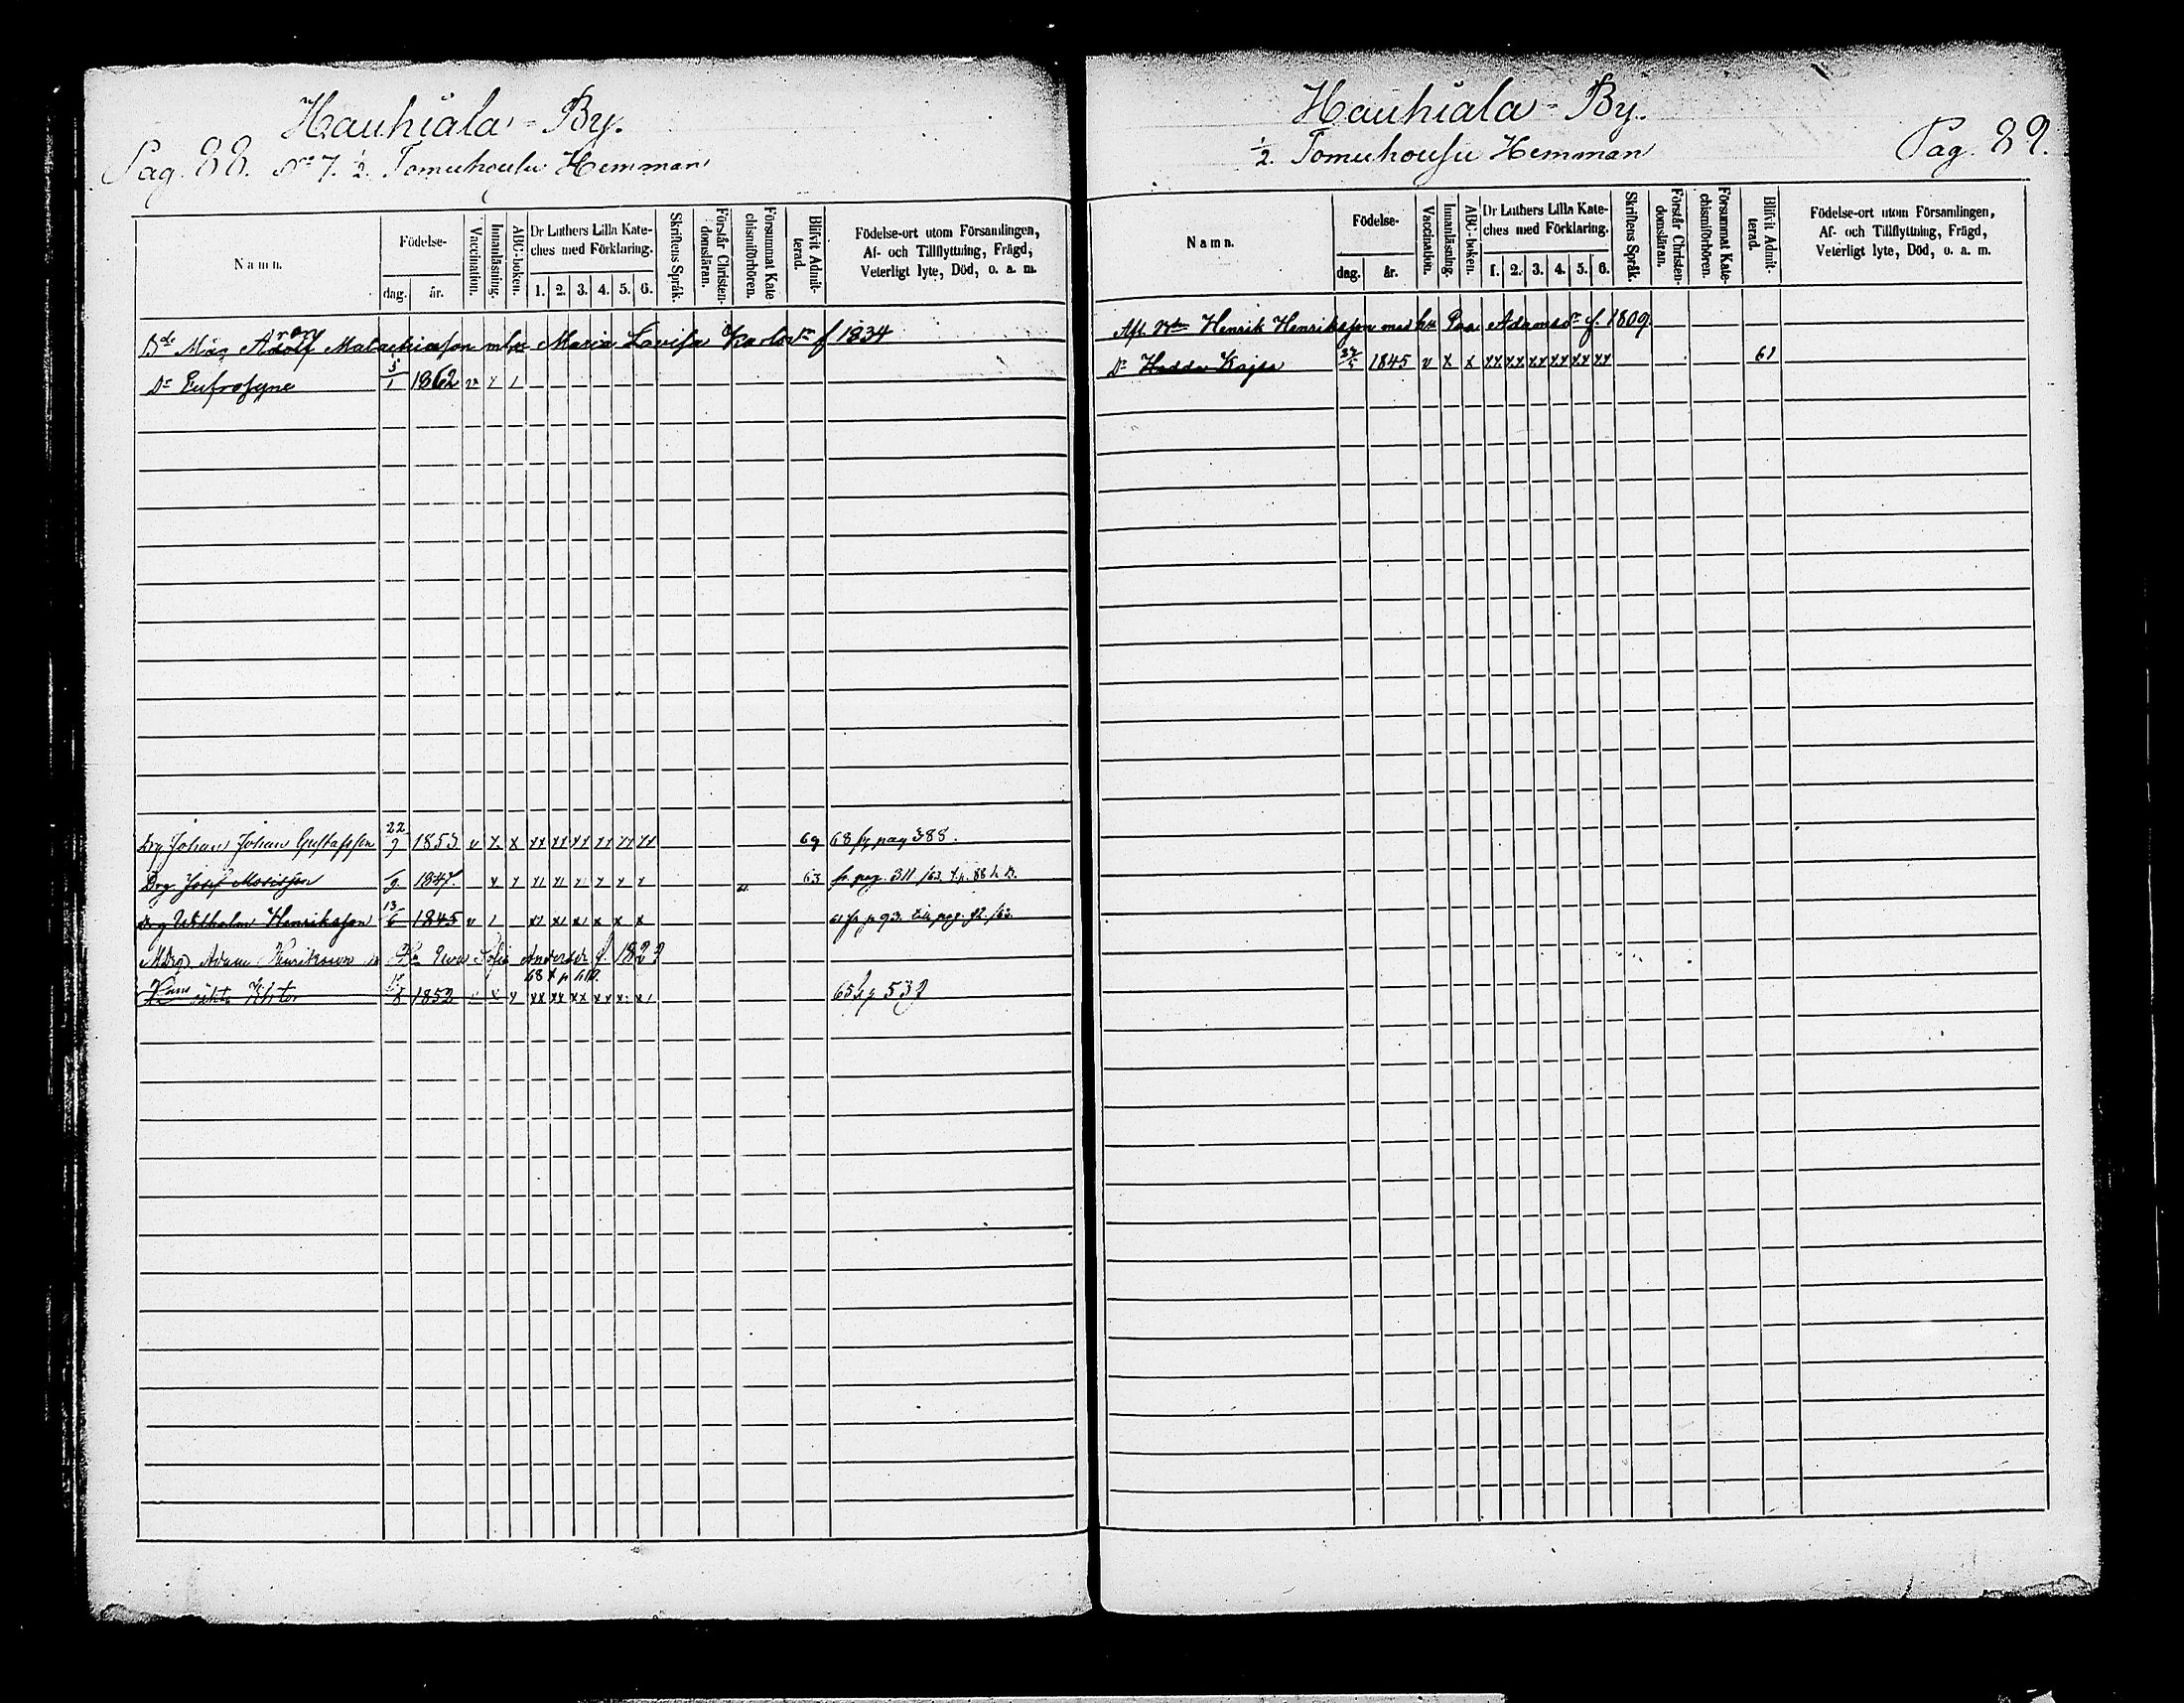 Hauhiala - By.
Pag. 88. No 7. ½. Tomuhousu Hemman
Namn.
Födelse-
dag.
år.
Vaccination.
Innanläsning.
ABC-boken.
Dr Luthers Lilla Kate-
ches med Förklaring.
1. 2. 3. 4. 5. 6.
Skriftens Språk.
Förstår Christen-
domsläran.
Försummat Kate
chismiförhören.
Blifvit Admit-
terad.
Födelse-ort utom Församlingen,
Af- och Tillflyttning, Frägd,
Veterligt lyte, Död, o. a. m.
Bde Måg Adolf Malachiasson m hu Maria Lovisa Karlsdr f 1834
Dr Eufrosyne 5/1 1862
Drg Johan Johan Gustafsson 22/9 1853 v x x xx xx xx xx xx xx 69 68 fr pag 388.
Drg Josef Mosisson 1847. 63 fr. pag. 311 /63.
Drg Wilhelm Henriksson 13/6 1845 fr p 93. till pag. 82 /63.
Adam Henriksson Hu Eva Sofia Andersdr f. 182
68 t p
Viktor 1852 65 53
Hauhiala - By.
½. Tomuhousu Hemman
Pag. 89.
Namn.
Födelse-
dag.
år.
Vaccination.
Innanläsning.
ABC-boken.
Dr Luthers Lilla Kate-
ches med Förklaring.
1. 2. 3. 4. 5. 6.
Skriftens Språk.
Förstår Christen-
domsläran.
Försummat Kate-
chismiförhören.
Blifvit Admit-
terad.
Födelse-ort utom Församlingen,
Af- och Tillflyttning, Frägd,
Veterligt lyte, Död, o. a. m.
Afl. Henrik Henriksson med hu Adamsdr f. 1809
Dr Hedda Kajsa 1845 v x x xx xx xx xx xx xx 61